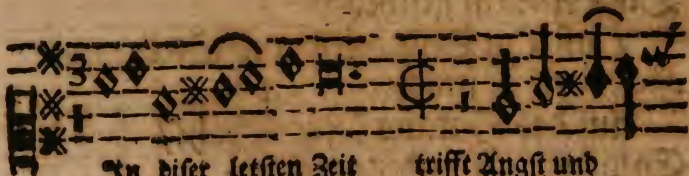 In diser letsten Zeit trifft Angst und